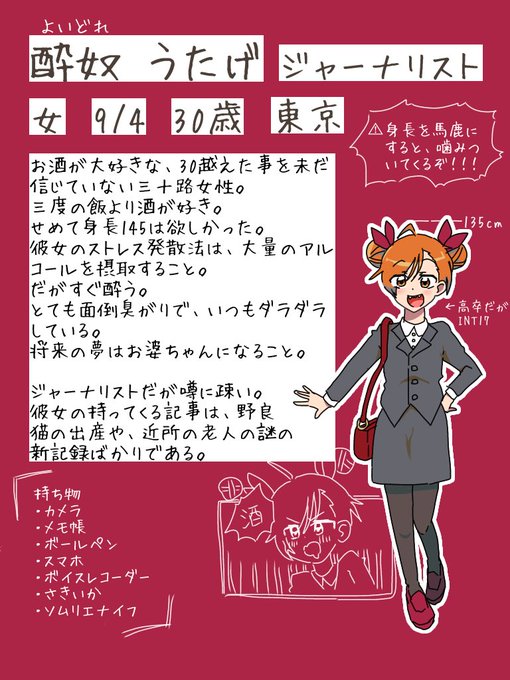 よいどれ
酔奴 うたげ ジャーナリスト
女 9/4 30歳 東京
⚠身長を馬鹿に
すると、噛みつ
いてくるぞ!!!
お酒が大好きな、30越えた事を未だ
信じていない三十路女性。
三度の飯より酒が好き。
せめて身長145は欲しかった。
彼女のストレス発散法は、大量のアル
コールを摂取すること。
だがすぐ酔う。
とても面倒臭がりで、いつもダラダラ
している。
将来の夢はお婆ちゃんになること。
ジャーナリストだが噂に疎い。
彼女の持ってくる記事は、野良
猫の出産や、近所の老人の謎の
新記録ばかりである。
135cm
←高卒だが
INT17
持ち物
・カメラ
・メモ帳
・ボールペン
・スマホ
・ボイスレコーダー
・さきいか
・ソムリエナイフ
酒